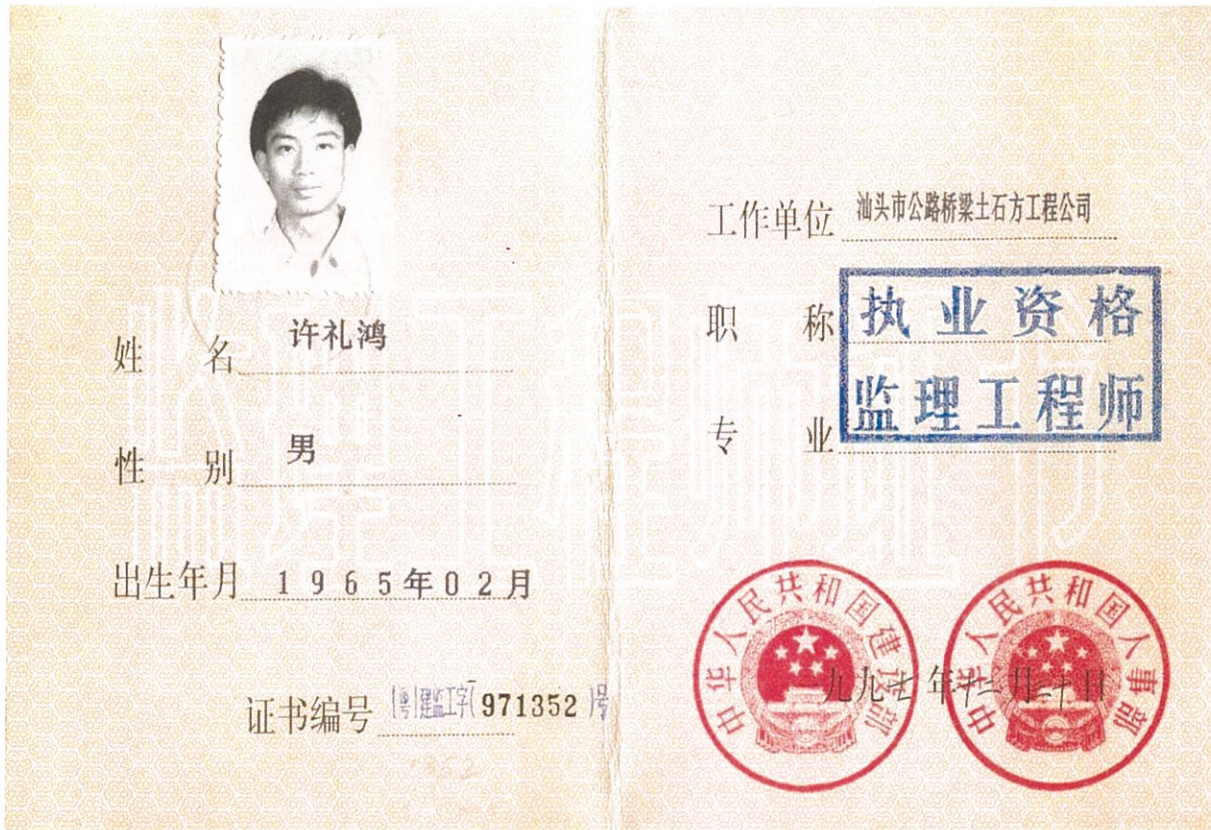 姓 名 许礼鸿
性 别 男
出生年月 1965年02月
证书编号 (粤)建监工字(971352)号
1352
工作单位 汕头市公路桥梁土石方工程公司
职 称
专 业
执业资格
监理工程师
监理工程师证书
中华人民共和国建设部
中华人民共和国人事部
九九七年十二月二十日